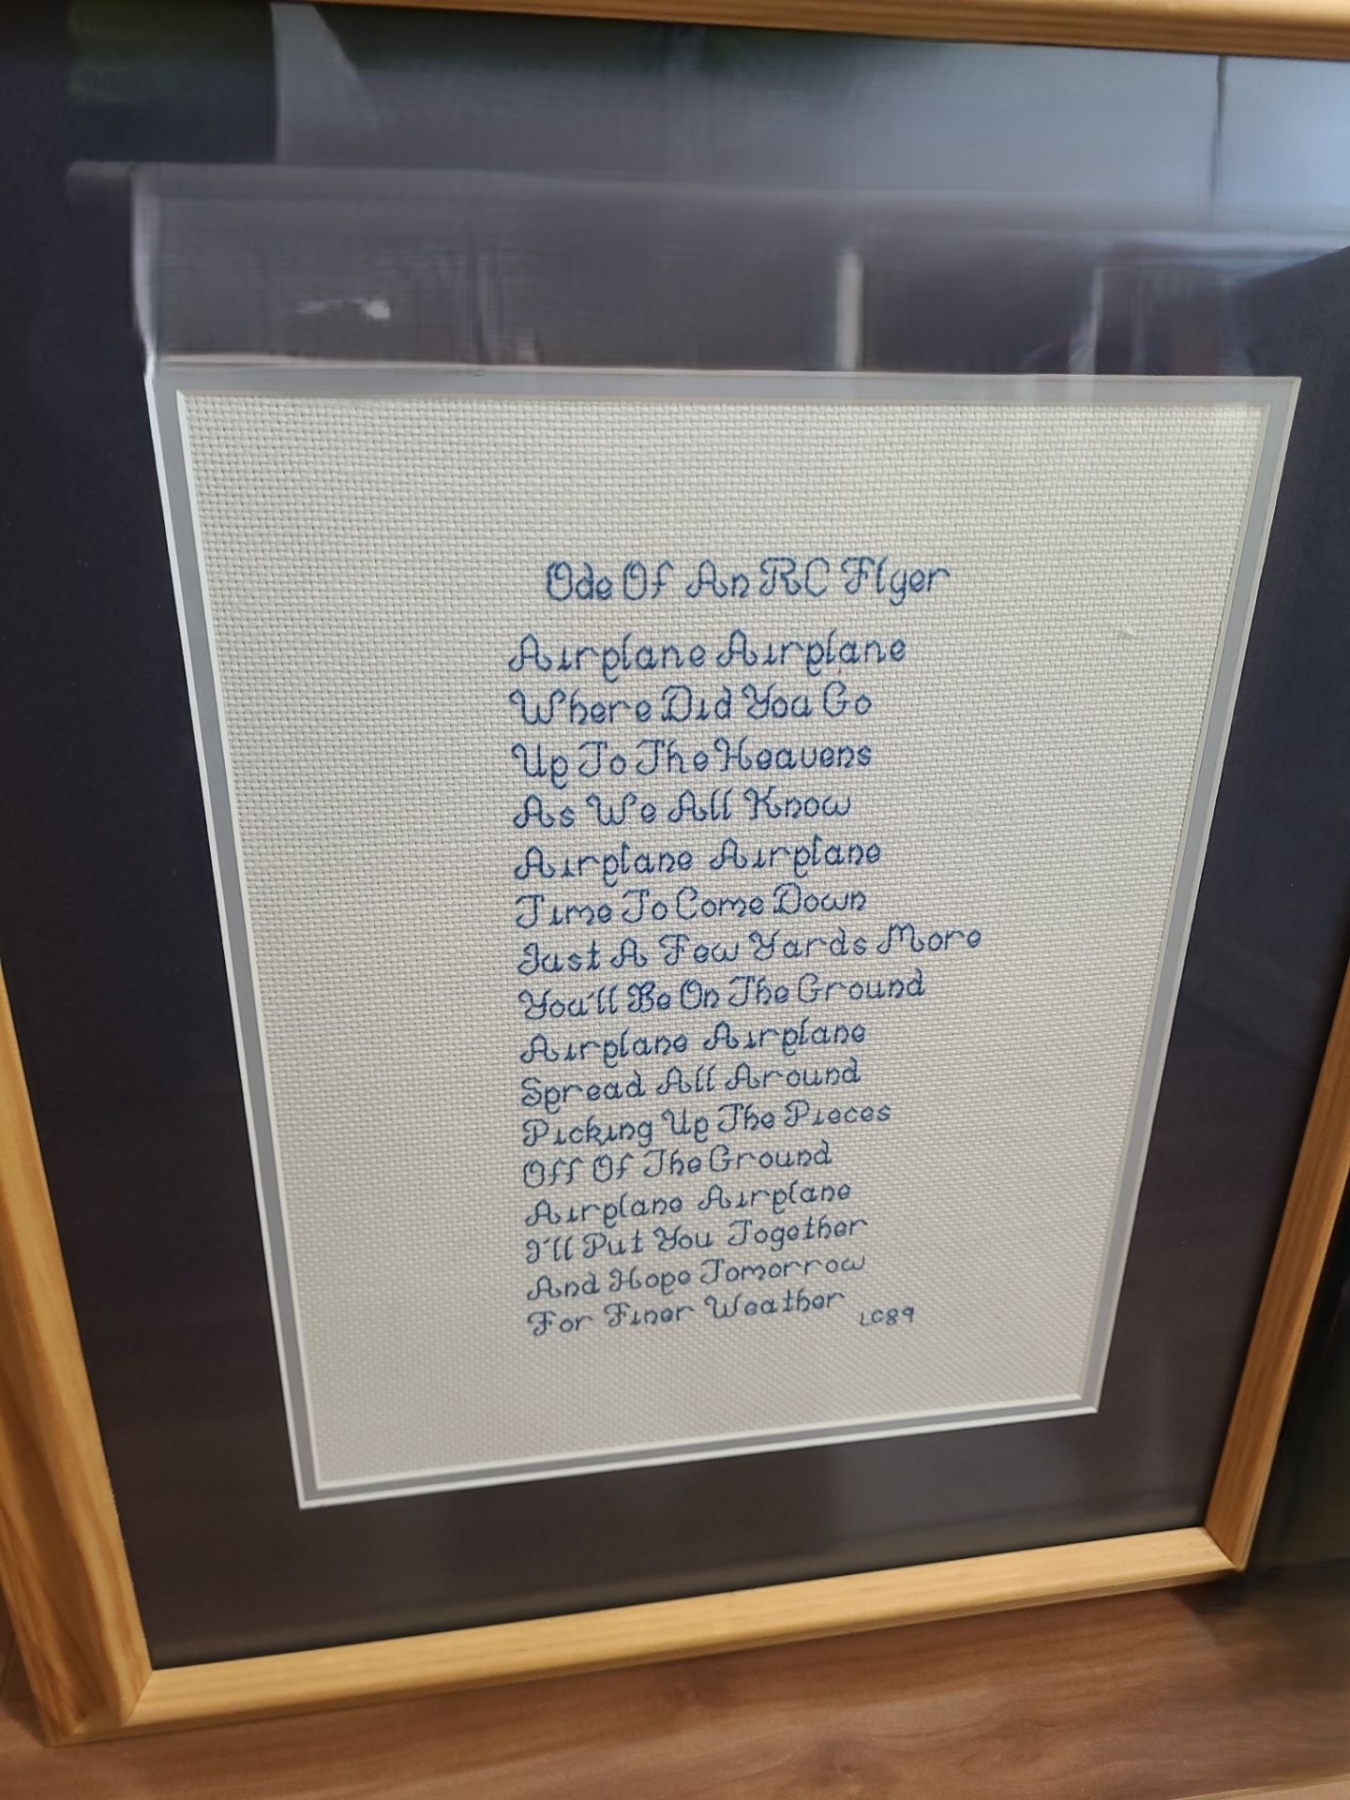 Ode Of An RC Flyer
Airplane Airplane
Where Did You Go
Up To The Heavens
As We All Know
Airplane Airplane
Time To Come Down
Just A Few Yards More
You'll Be On The Ground
Airplane Airplane
Spread All Around
Picking Up The Pieces
Off Of The Ground
Airplane Airplane
I'll Put You Together
And Hope Tomorrow
For Finer Weather
LC89